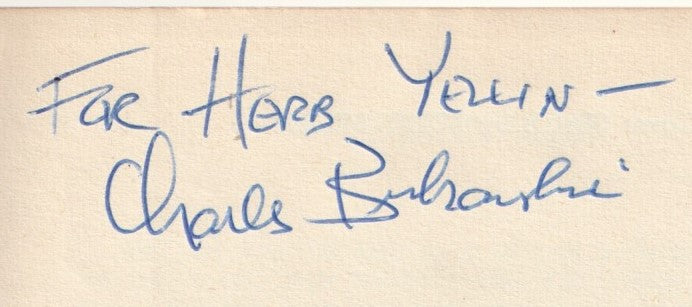 FOR HERB YELLIN —
Charles Bukowski